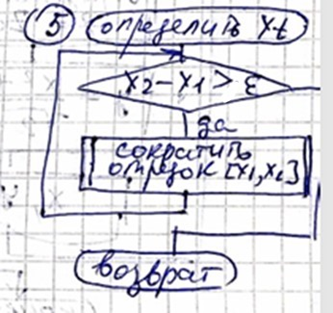 5 определить xt
x2-x1>ε
да
сократить
отрезок [x1,x2]
возврат